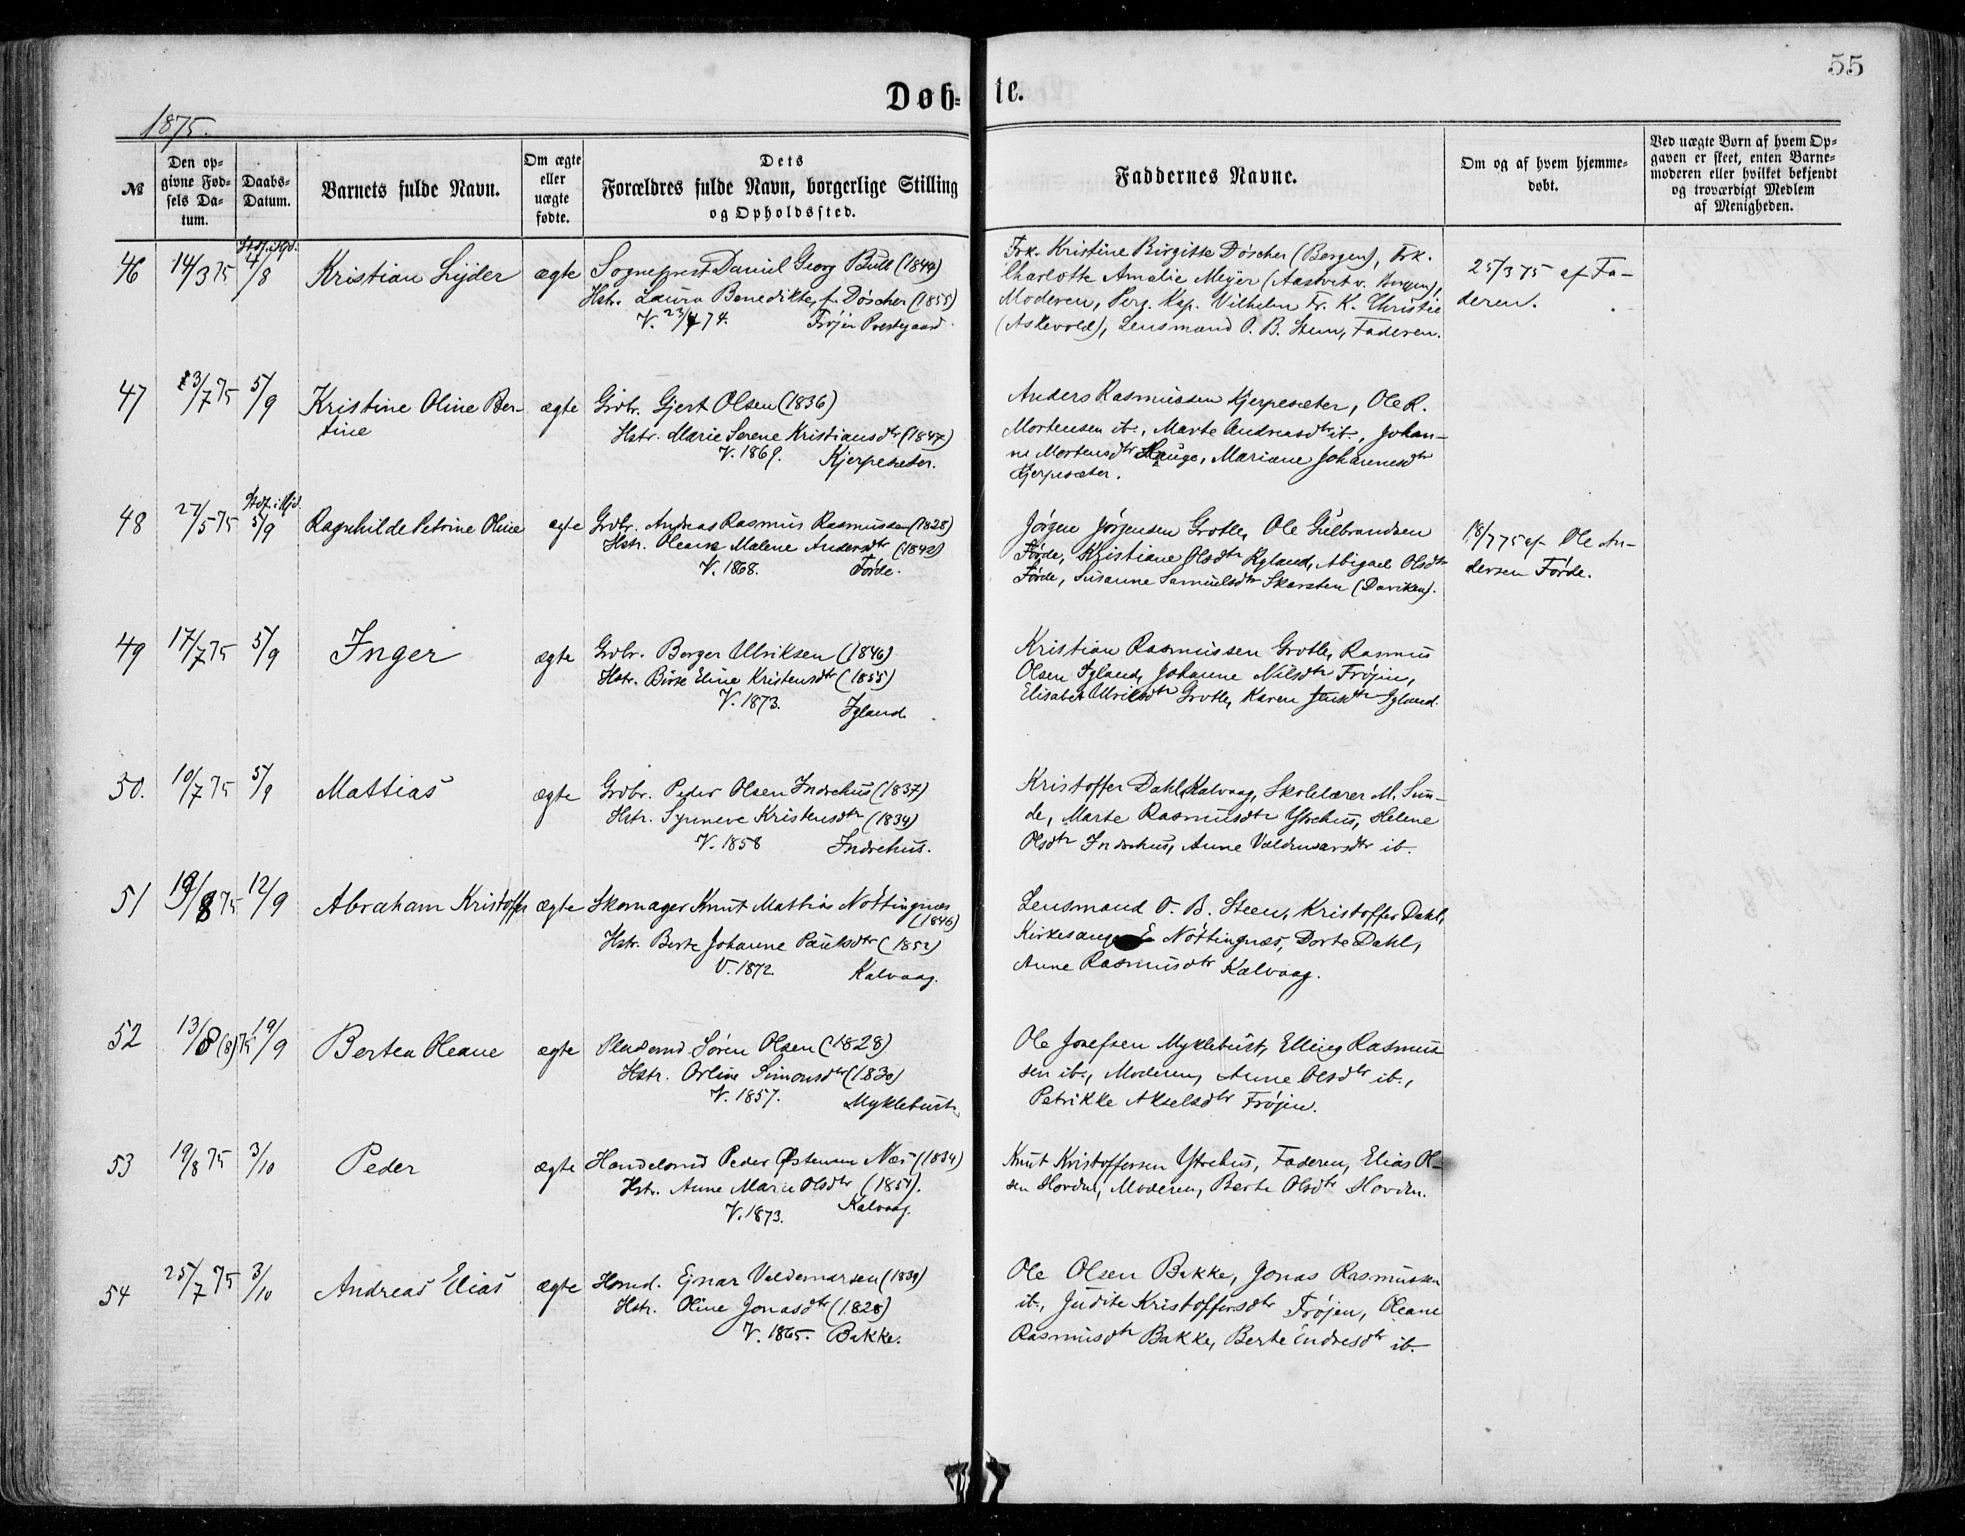 55
Døb=
te.
1875.
№
Den op=
givne Fød=
sels Da=
tum.
Daabs=
Datum.
Barnets fulde Navn.
Om ægte
eller
uægte
fødte.
Dets
Forældres fulde Navn, borgerlige Stilling
og Opholdssted.
Faddernes Navne.
Om og af hvem hjemme=
døbt.
Ved uægte Børn af hvem Op=
gaven er skeet, enten Barne=
moderen eller hvilket bekjendt
og troværdigt Medlem
af Menigheden.
46 14/3 75 4/8 Kristian Lyder ægte Sogneprest Daniel Georg Bull (1849)
Hstr. Laura Benedikte f. Døscher (1855)
V. 23/4 74. Frøjen Prestegaard.
Frk. Kristine Birgitte Døscher (Bergen), Frk.
Charlotte Amalie Meyer (Aastvet v. Bergen),
Moderen, Prg. Kap. Vilhelm Fr. K. Christie
(Askevold), Lensmand O. B. Steen, Faderen.
25/3 75 af Fa-
deren.
47 23/7 75 5/9 Kristine Oline Ber-
tine
ægte Grbr. Gjert Olsen (1836)
Hstr. Marie Serene Kristiansdtr (1847)
V. 1869. Kjerpeseter.
Anders Rasmussen Kjerpesæter, Ole R.
Mortensen ib., Marte Andreasdtr ib., Johan-
ne Mortensdtr Hauge, Mariane Johannesdtr
Kjerpesæter.
48 27/5 75 5/9 Ragnhilde Petrine Oline ægte Grbr. Andreas Rasmus Rasmussen (1828)
Hstr. Oleane Malene Andersdtr (1842)
V. 1868. Førde.
Jørgen Jørgensen Grotle, Ole Gulbrandsen
Førde, Kristiane Olsdtr Rylands, Abigael Olsdtr
Førde, Susanne Samuelsdtr Skarsten (Daviken).
18/7 75 af Ole An-
dersen Førde.
49 17/7 75 5/9 Inger ægte Grbr. Borger Ulriksen (1846)
Hstr. Birte Eline Kristensdtr (1855)
V. 1873. Igland.
Kristian Rasmussen Grotle, Rasmus
Olsen Igland, Johanne Nilsdtr Frøjen,
Elisabet Ulriksdtr Grotle, Karen Jensdtr Igland.
50. 10/7 75 5/9 Mattias ægte Grbr. Peder Olsen Indrehus (1837)
Hstr. Synneve Kristensdtr (1834)
V. 1858 Indrehus.
Kristoffer Dahl, Kalvaag, Skolelærer M. Sun-
de, Marte Rasmusdtr Ytrehus, Helene
Olsdtr Indrehus, Anne Valdemarsdtr ib.
51 19/8 75 12/9 Abraham Kristoffer ægte Skomager Knut Mattias Nøttingnæs
(1846)
Hstr. Berte Johanne Paulsdtr (1852)
V. 1872. Kalvaag.
Lensmand O. B. Steen, Kristoffer Dahl,
Kirkesanger E Nøttingnæs, Dorte Dahl,
Anne Rasmusdtr Kalvaag.
52 13/8 (8) 75 19/9 Bertea Oleane ægte Pladsmd Søren Olsen (1828)
Hstr. Orline Simonsdtr (1830)
V. 1857. Myklebust.
Ole Josefsen Myklebust, Elling Rasmus
sen ib., Moderen, Anne Olsdtr ib.,
Petrikke Akselsdtr Frøjen.
53 19/8 75 3/10 Peder ægte Handelsmd Peder Østensen Næs (1834)
Hstr. Anne Marie Olsdtr (1851).
V. 1873. Kalvaag.
Knut Kristoffersen Ytrehus, Faderen, Elias Ol-
sen Hovden, Moderen, Berte Olsdtr Hovden.
54 25/7 75 3/10 Andreas Elias ægte Hsmd. Ejnar Valdemarsen (1839)
Hstr. Oline Jonasdtr (1828)
V. 1865. Bakke.
Ole Olsen Bakke, Jonas Rasmussen
ib., Judite Kristoffersdtr Frøjen, Oleane
Rasmusdtr Bakke, Berte Endresdtr ib.